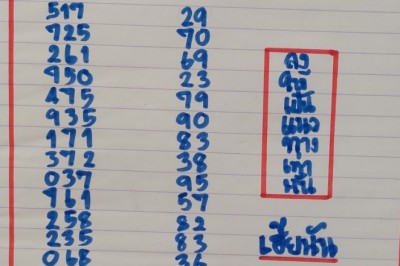 517 29
725 70
261 69
950 23
475 79
935 90
171 83
372 38
037 95
761 57
258 82
235 83
068 36
ดู
ไว้
เป็น
แนว
ทาง
เท่า
นั้น
เฮียนัน